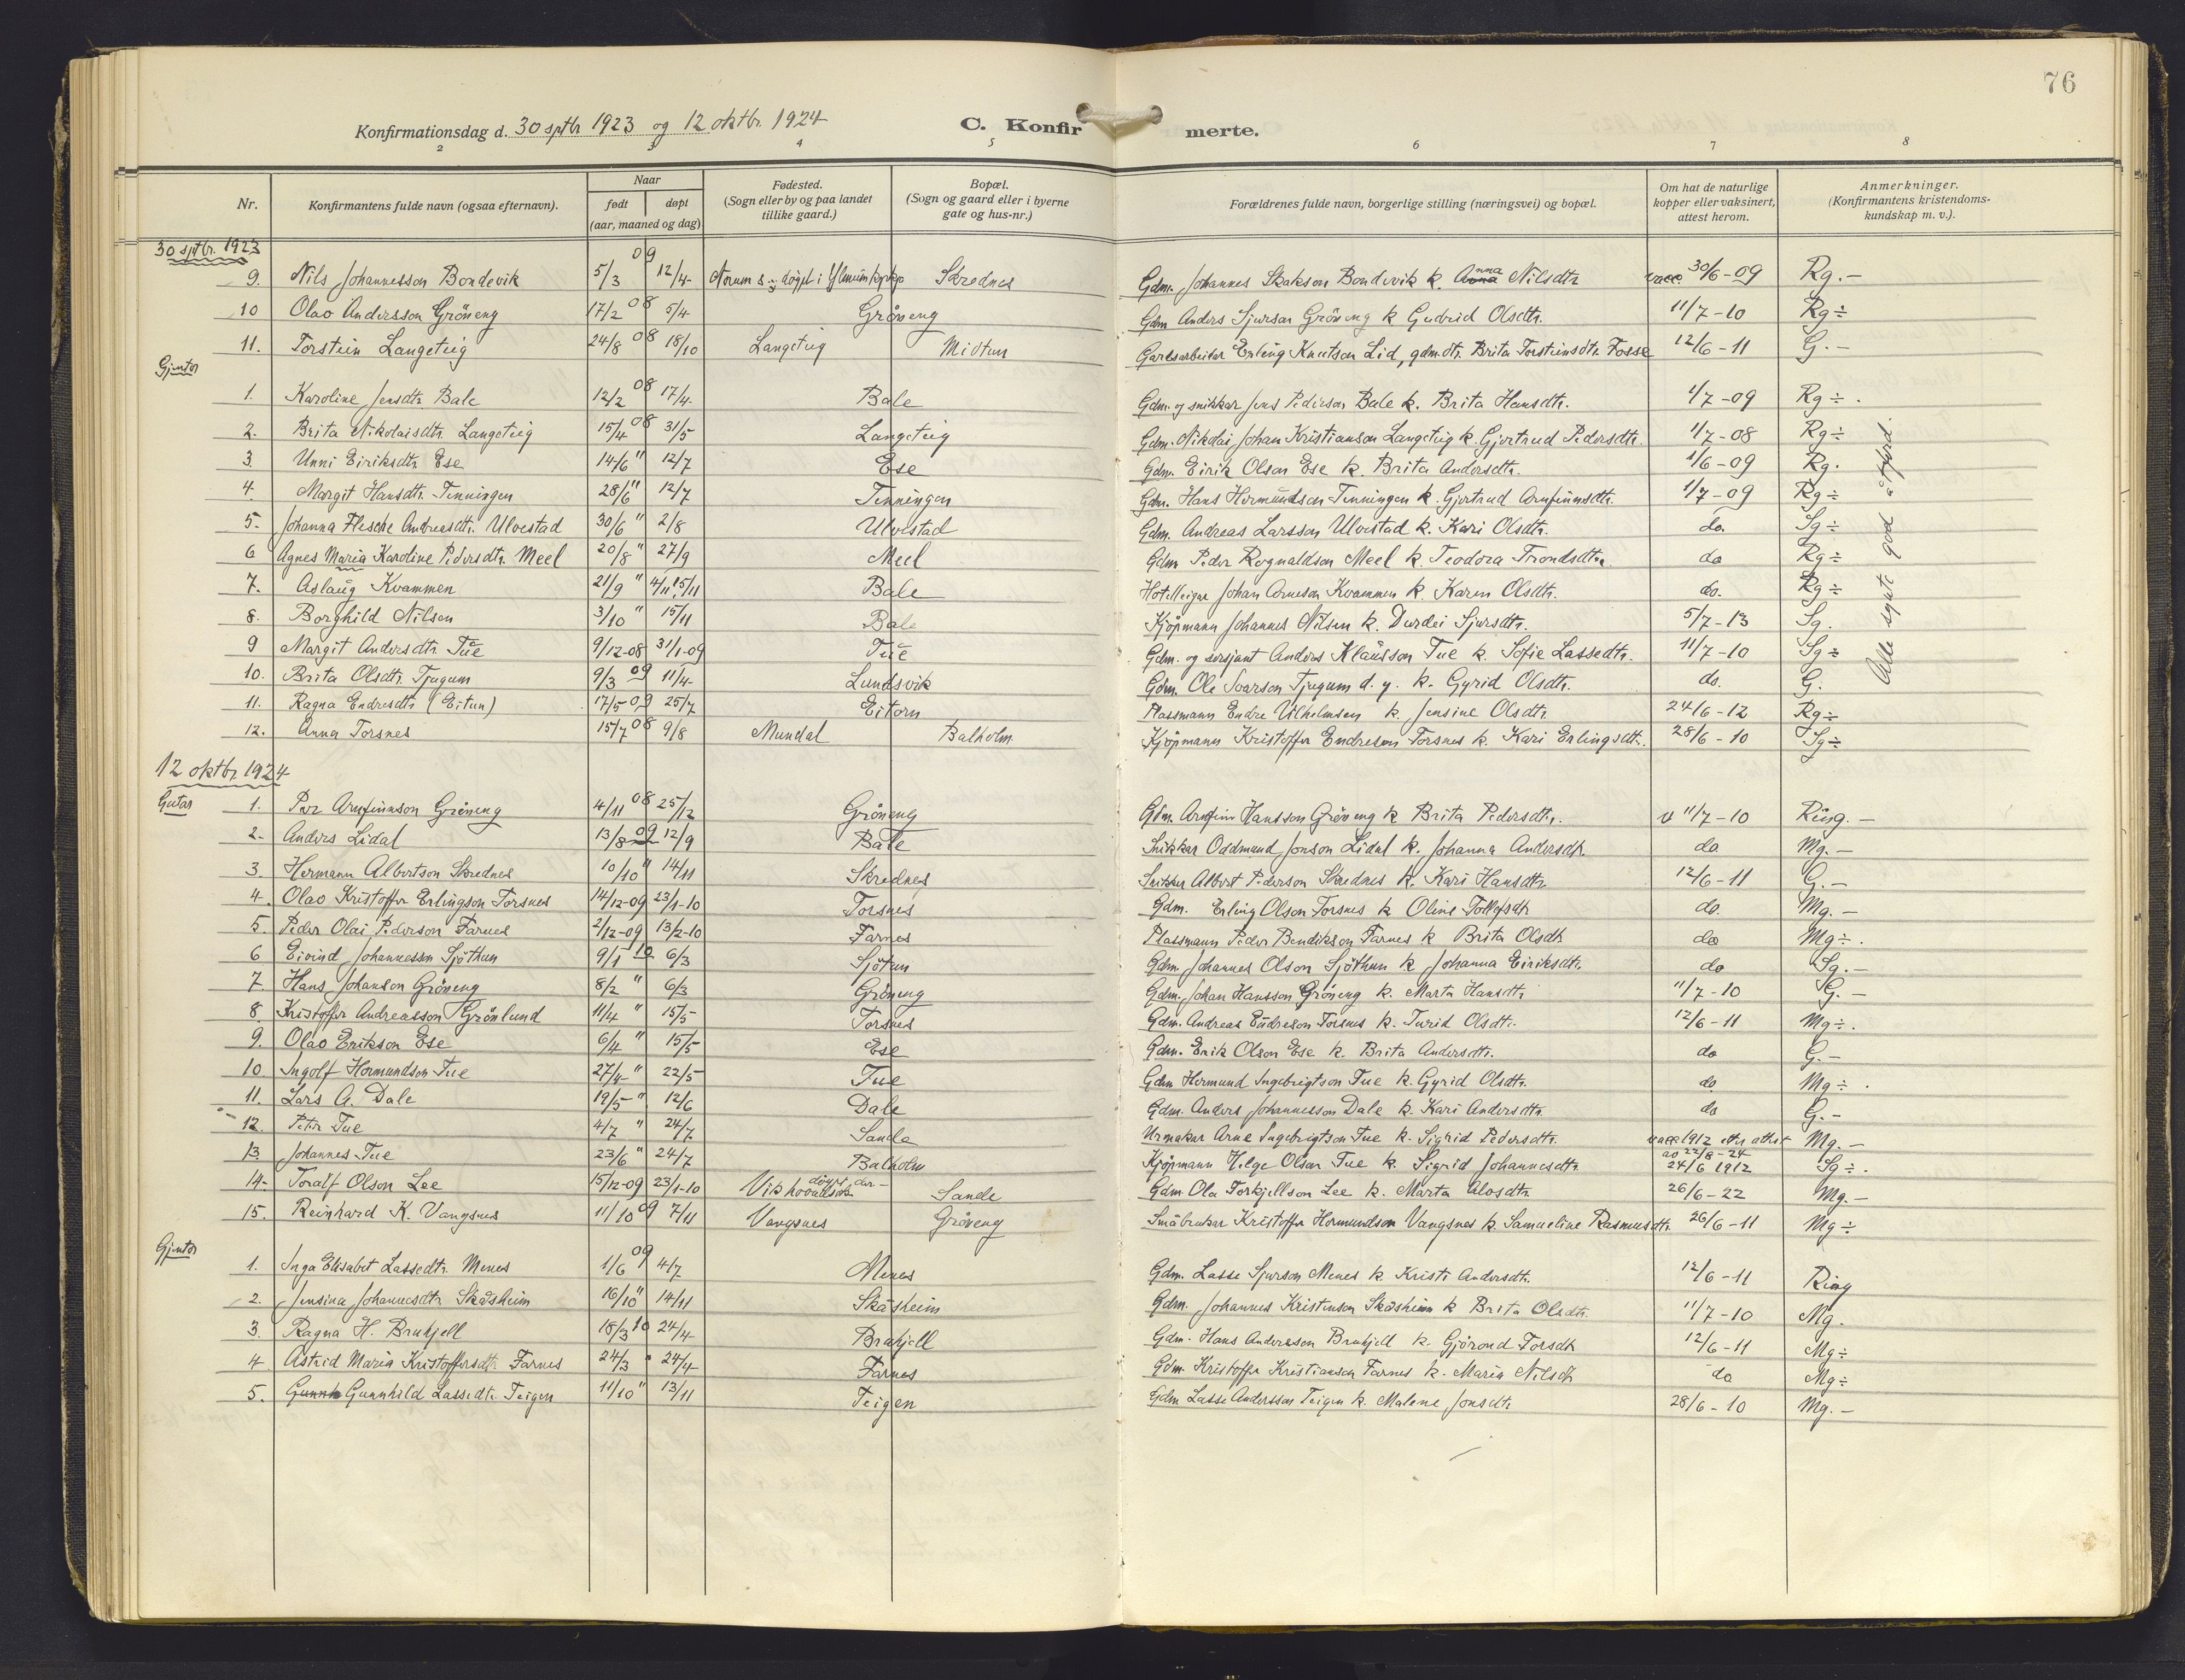 76
Konfirmationsdag d. 30 sptbr 1923 og 12 oktbr. 1924
C. Konfirmerte.
2 3 4 5 6 7 8
Nr.
Konfirmantens fulde navn (ogsaa efternavn).
Naar
født døpt
(aar, maaned og dag)
Fødested.
(Sogn eller by og paa landet
tillike gaard.)
Bopæl.
(Sogn og gaard eller i byerne
gate og hus-nr.)
Forældrenes fulde navn, borgerlige stilling (næringsvei) og bopæl.
Om hat de naturlige
kopper eller vaksinert,
attest herom.
Anmerkninger.
(Konfirmantens kristendoms-
kundskap m. v.).
30 sptbr. 1923
9. Nils Johannesson Bondevik 5/3 09 12/4 Norum s. døypt i Skrednes Gdm. Johannes Skakson Bondevik k. Anna Nilsdtr vacc 30/6-09 Rg.-
10 Olav Andersson Gröneng 17/2 08 5/4 Gröneng Gdm Anders Sjurson Gröneng k Gudrid Olsdtr. 11/7-10 Rg÷
11. Torstein Langeteig 24/8 08 18/10 Langeteig Midtun Garlsarbeidar Erling Knutson Lid, gdm.dtr. Brita Torsteinsdtr. Fosse 12/6-11 G.-
Gjentor
1. Karoline Jensdtr. Bale 12/2 08 17/4 Bale Gdm. og snikkar Jens Pederson Bale k. Brita Hansdtr. 1/7-09 Rg÷.
2. Brita Nikolaisdtr. Langeteig 15/4 08 31/5 Langeteig Gdm. Nikolai Johan Kristianson Langeteig k. Gjertrud Pedersdtr. 1/7-08 Rg÷
3. Unni Eiriksdtr. Ese 14/6 " 12/7 Ese Gdm. Eirik Olson Ese k. Brita Andersdtr. 1/6-09 Rg.
4. Margit Hansdtr. Tenningen 28/6 " 12/7 Tenningen Gdm. Hans Hermundson Tenningen k. Gjertrud Arnfinnsdtr. 1/7-09 Rg÷
5. Johanna Flesche Andreasdtr. Ulvestad 30/6 " 2/8 Ulvestad Gdm. Andreas Larsson Ulvestad k. Kari Olsdtr. do. Sg÷
6 Agnes Maria Karoline Pedersdtr. Meel 20/8 " 27/9 Meel Gdm Peder Rognaldson Meel k. Teodora Trondsdtr. do Rg÷
7. Aslaug Kvammen 21/9 " 4/11, 15/11 Bale Hotelleigar Johan Arneson Kvammen k. Karen Olsdtr. do. Rg÷
8. Borghild Nilsen 3/10 " 15/11 Bale Kjöpmann Johannes Nilsen k. Durdei Sjursdtr. 5/7-13 Sg.
9 Margit Andersdtr. Tue 9/12-08 31/1-09 Tue Gdm. og sersjant Anders Klausson Tue k. Sofie Lassedtr. 11/7-10 Sg÷
10. Brita Olsdtr. Tjugum 9/3 09 11/4 Lundsvik Gdm. Ole Ivarson Tjugum d. y. k. Gyrid Olsdtr. do. G.
11. Ragna Endresdtr (Eitun) 17/5 09 25/7 Eitorn Plassmann Endre Vilhelmsen k. Jensine Olsdtr. 24/6-12 Rg÷
12. Anna Torsnes 15/7 08 9/8 Mundal Balholm Kjöpmann Kristoffer Endreson Torsnes k. Kari Erlingsdtr. 28/6-10 Sg÷
Alle synte god åtferd.
12 oktbr. 1924
Gutar 1. Per Arnfinnson Gröneng 4/11 08 25/12 Gröneng Gdm. Arnfinn Hansson Gröneng k Brita Pedersdtr. v 11/7-10 Ring.-
2. Anders Lidal 13/8 09 12/9 Bale Snikkar Oddmund Jonson Lidal k. Johanna Andersdtr. do Mg.-
3. Hermann Albertson Skrednes 10/10 " 14/11 Skrednes Snikkar Albert Pederson Skrednes k. Kari Hansdtr. 12/6-11 G.-
4. Olav Kristoffer Erlingson Torsnes 14/12-09 23/1-10 Torsnes Gdm. Erling Olson Torsnes k Oline Tollefsdtr do. Mg.-
5. Peder Olai Pederson Farnes 2/12-09 13/2-10 Farnes Plassmann Peder Bendikson Farnes k Brita Olsdtr do Mg÷.
6 Eivind Johannesson Sjöthun 9/1 10 6/3 Sjötun Gdm. Johannes Olson Sjöthun k Johanna Eiriksdtr. do Sg.-
7. Hans Johanson Gröneng 8/2 " 6/3 Gröneng Gdm. Johan Hansson Gröneng k. Marta Hansdtr. 11/7-10 G.-
8. Kristoffer Andreasson Grönlund 11/4 " 15/5 Torsnes Gdm. Andreas Endreson Torsnes k. Turid Olsdtr. 12/6-11 Mg÷.
9. Olav Erikson Ese 6/4 " 15/5 Ese Gdm. Erik Olson Ese k. Brita Andersdtr. do G.-
10. Ingolf Hermundson Tue 27/4 " 22/5 Tue Gdm Hermund Ingebrigtson Tue k. Gyrid Olsdtr. do Mg÷.
11. Lars A. Dale 19/5 " 12/6 Dale Gdm. Anders Johannesson Dale k. Kari Andersdtr. do G.-
12. Peter Tue 4/7 " 24/7 Sande Urmakar Arne Ingebrigtson Tue k. Sigrid Pedersdtr. vacc 1912 etter attest av 22/8-24 Mg.-
13. Johannes Tue 23/6 " 24/7 Balholm Kjöpmann Helge Olson Tue k. Sigrid Johannesdtr. 24/6 1912 Sg÷.
14. Toralf Olson Lee 15/12-09 23/1-10 Vik hovudsokn döypt der- Sande Gdm. Ola Torkjellson Lee k. Marta Olosdtr. 26/6-22 Mg.-
15. Reinhard K. Vangsnes 11/10 09 7/11 Vangsnes Gröneng Småbrukar Kristoffer Hermundson Vangsnes k. Samueline Rasmusdtr. 26/6-11 Mg÷
Gjentor
1. Inga Elisabet Lassedtr. Menes 1/6 09 4/7 Menes Gdm. Lasse Sjurson Menes k. Kristi Andersdtr. 12/6-11 Ring
2. Jensina Johannesdtr. Skåsheim 16/10 " 14/11 Skåsheim Gdm. Johannes Kristenson Skåsheim k Brita Olsdtr. 11/7-10 Mg.
3. Ragna H. Brukjell 18/3 10 24/4 Brukjell Gdm. Hans Anderson Brukjell k. Gjörond Torsdtr 12/6-11 Mg÷
4. Astrid Maria Kristoffersdtr. Farnes 24/3 " 24/4 Farnes Gdm. Kristoffer Kristianson Farnes k. Maria Nilsdtr do Mg÷
5. Gunnh Gunnhild Lassedtr. Teigen 11/10 " 13/11 Teigen Gdm Lasse Andersson Teigen k. Malene Jonsdtr. 28/6-10 Mg.-